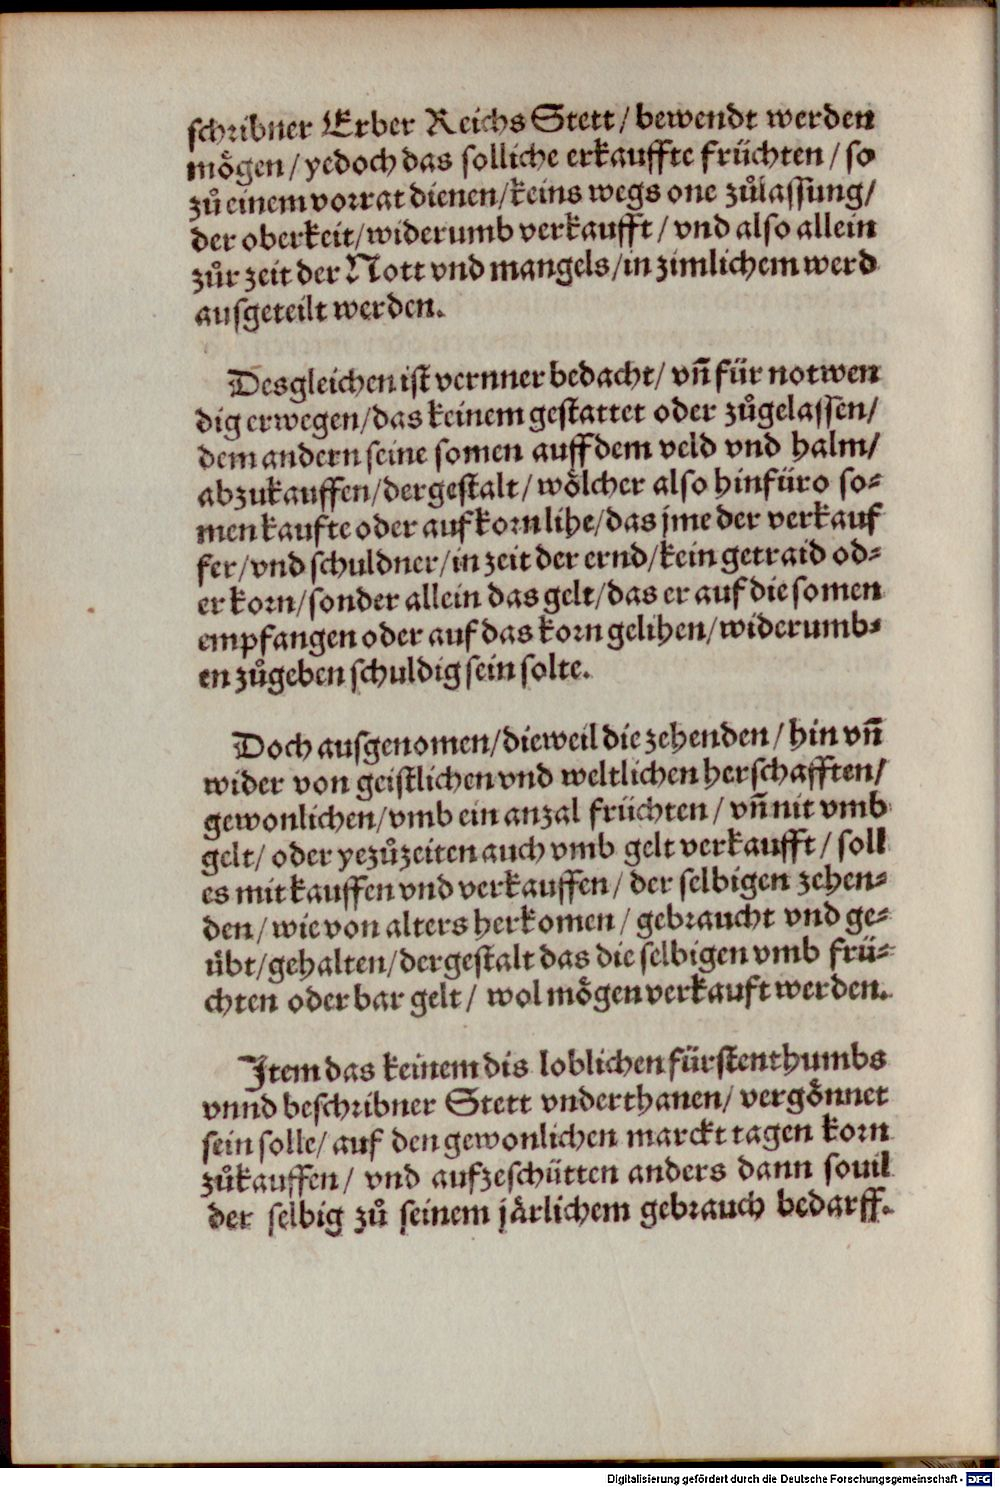 schribner Erber Reichs Stett / bewendt werden
moͤgen / yedoch das solliche erkauffte früchten / so
zuͦ einem vorrat dienen / keins wegs one zuͦlassung /
der oberkeit / widerumb verkaufft / vnd also allein
zuͦr zeit der Nott vnd mangels / in zimlichem werd
ausgeteilt werden.
Desgleichen ist vernner bedacht / vn̄ für notwen
dig erwegen / das keinem gestattet oder zuͦgelassen /
dem andern seine somen auff dem veld vnd halm /
abzukauffen / dergestalt / woͤlcher also hinfüro so⸗
men kaufte oder auf korn lihe / das jme der verkauf
fer / vnd schuldner / in zeit der ernd / kein getraid od⸗
er korn / sonder allein das gelt / das er auf die somen
empfangen oder auf das korn gelihen / widerumb⸗
en zuͦgeben schuldig sein solte.
Doch ausgenomen / dieweil die zehenden / hin vn̄
wider von geistlichen vnd weltlichen herschafften /
gewonlichen / vmb ein anzal früchten / vn̄ nit vmb
gelt / oder yezuͦzeiten auch vmb gelt verkaufft / soll
es mit kauffen vnd verkauffen / der selbigen zehen⸗
den / wie von alters herkomen / gebraucht vnd ge⸗
übt / gehalten / dergestalt das die selbigen vmb frü⸗
chten oder bar gelt / wol moͤgen verkauft werden.
Item das keinem dis loblichen fürstenthumbs
vnnd beschribner Stett vnderthanen / vergoͤnnet
sein solle / auf den gewonlichen marckt tagen korn
zuͦkauffen / vnd aufzeschütten anders dann souil
der selbig zuͦ seinem jaͤrlichem gebrauch bedarff.
Digitalisierung gefördert durch die Deutsche Forschungsgemeinschaft - DFG